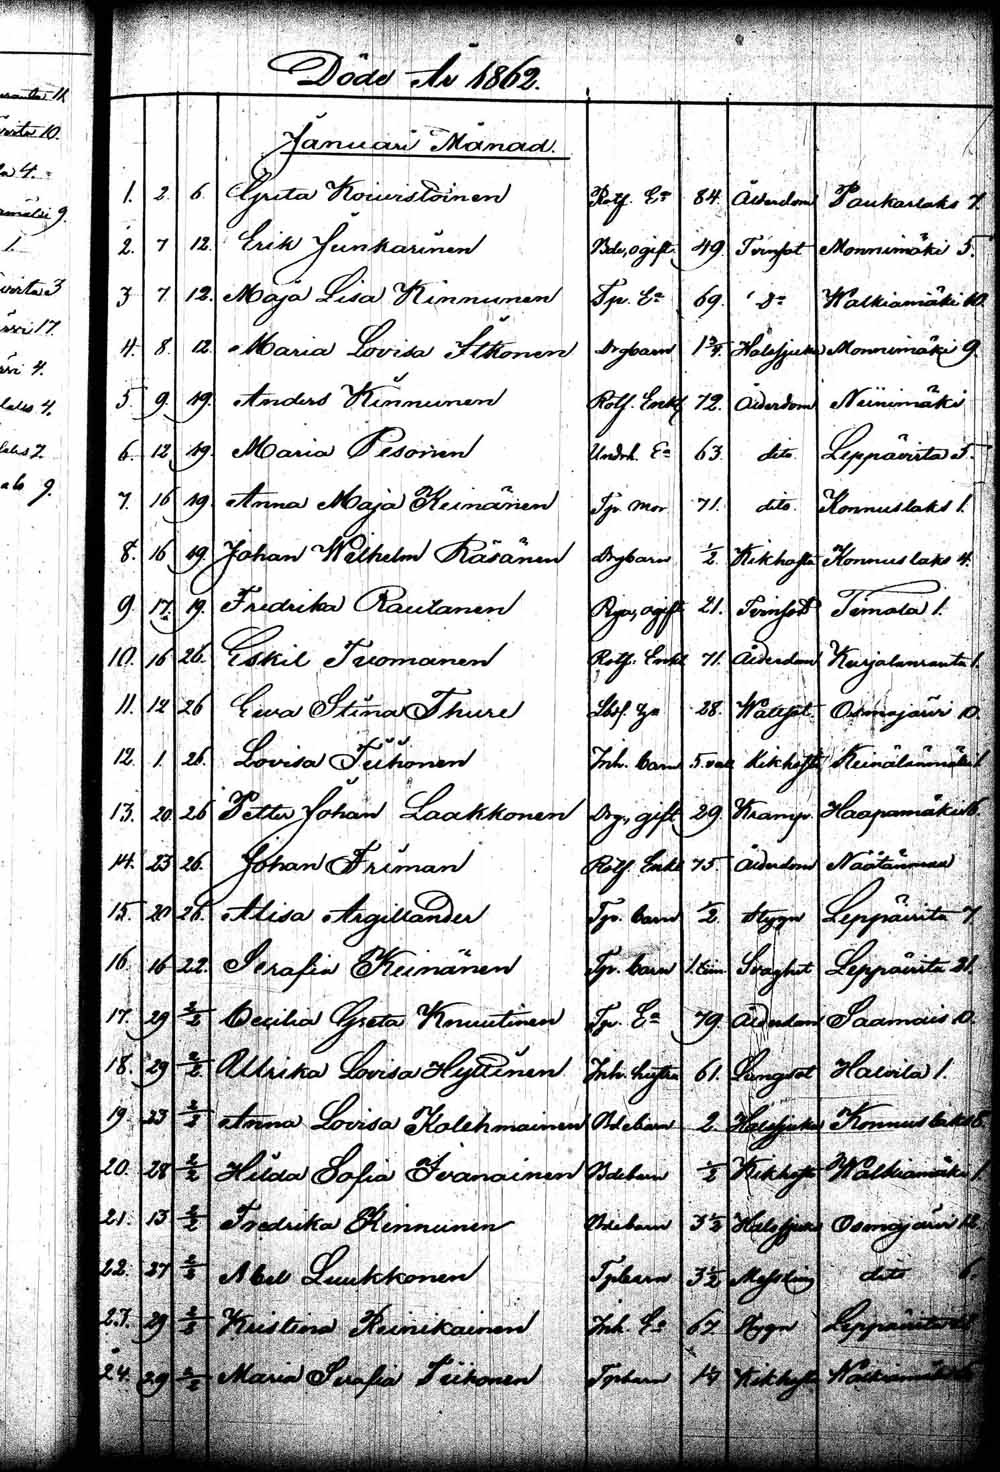 Döde År 1862.
Januari Månad.
1. 2. 6. Greta Koivistoinen Rotf. Ea 84. Ålderdom Paukarlaks 7.
2. 7 12. Erik Junkarinen Bde, ogift 49. Tvinsot Monnimäki 5.
3 7. 12. Maja Lisa Kinnunen Tp. Ea 69. Do Walkiamäki 10.
4. 8. 12. Maria Lovisa Itkonen Drgbarn 1 3/4. Halssjuka Monnimäki 9.
5. 9. 19. Anders Kinnunen Rotf. Enkl 72. Ålderdom Niinimäki
6. 12 19. Maria Pesonen Undrh. Ea 63. dito Leppävirta 5.
7. 16 19. Anna Maja Keinänen Tp. mor 71. dito Konnuslaks 1.
8. 16 19. Johan Wilhelm Räsänen Drgbarn 1/2. Kikhosta Konnuslaks 4.
9. 17. 19. Fredrika Rautanen Piga, ogift 21. Tvinsot Timola 1.
10. 16 26. Eskil Tuomanen Rotf. Enkl 71. Ålderdom Kurjalanranta 1.
11. 12 26 Ewa Stina Thure 28. Wattsot Osmajärvi 10.
12. 1. 26. Lovisa Tiihonen Inh. barn 5. vec Kikhosta Keinälänmäki 1
13. 20. 26 Petter Johan Laakkonen Drg, gift 29. Kramp. Haapamäki 6.
14. 23 26. Johan Friman Rotf. Enkl 75. Ålderdom Näätänmaa
15. 20 26. Alisa Argillander Tp. barn 1/2. Stygn Leppävirta 7.
16. 16 22. Serafia Keinänen Tp. barn 1. tim Svaghet Leppävirta 21.
17. 29 2/2 Cecilia Greta Knuutinen Tp. Ea 79. Ålderdom Saamais 10.
18. 29 2/2. Ullrika Lovisa Hyttinen Inh. hustru 61. Lungsot Halvila 1.
19. 23 2/2 Anna Lovisa Kolehmainen Bdebarn 2. Halssjuka Konnuslaks 8.
20. 28 2/2 Hilda Sofia Ivanainen Bdebarn 1/2 Kikhosta Walkiamäki 1.
21. 13 2/2 Fredrika Kinnunen Bdebarn 3 1/2 Halssjuka Osmajärvi 12.
22. 27 2/2 Abel Luukkonen Tpbarn 3 1/2 Messling dito 6.
23. 29 2/2 Kristina Reinikainen Inh. Ea 67. Stygn Leppävirta
24. 29 2/2 Maria Serafia Tiihonen Tpbarn Kikhosta Walkiamäki